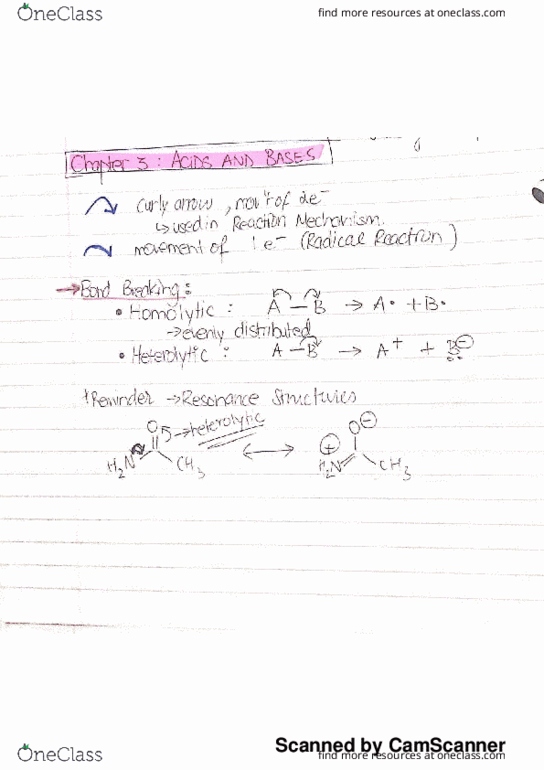 OneClass
find more resources at oneclass.com
Chapter 3 : ACIDS AND BASES
curly arrow , mov't of 2e-
↳ used in Reaction Mechanism.
movement of 1e- (Radical Reaction)
→ Bond Breaking :
• Homolytic : A — B → A• + B•
→ evenly distributed
• Heterolytic : A — B → A+ + B⊖
+ Reminder → Resonance Structures
O → heterolytic O⊖
H2N CH3 ⟷ ⊕ H2N CH3
Scanned by CamScanner
OneClass
find more resources at oneclass.com